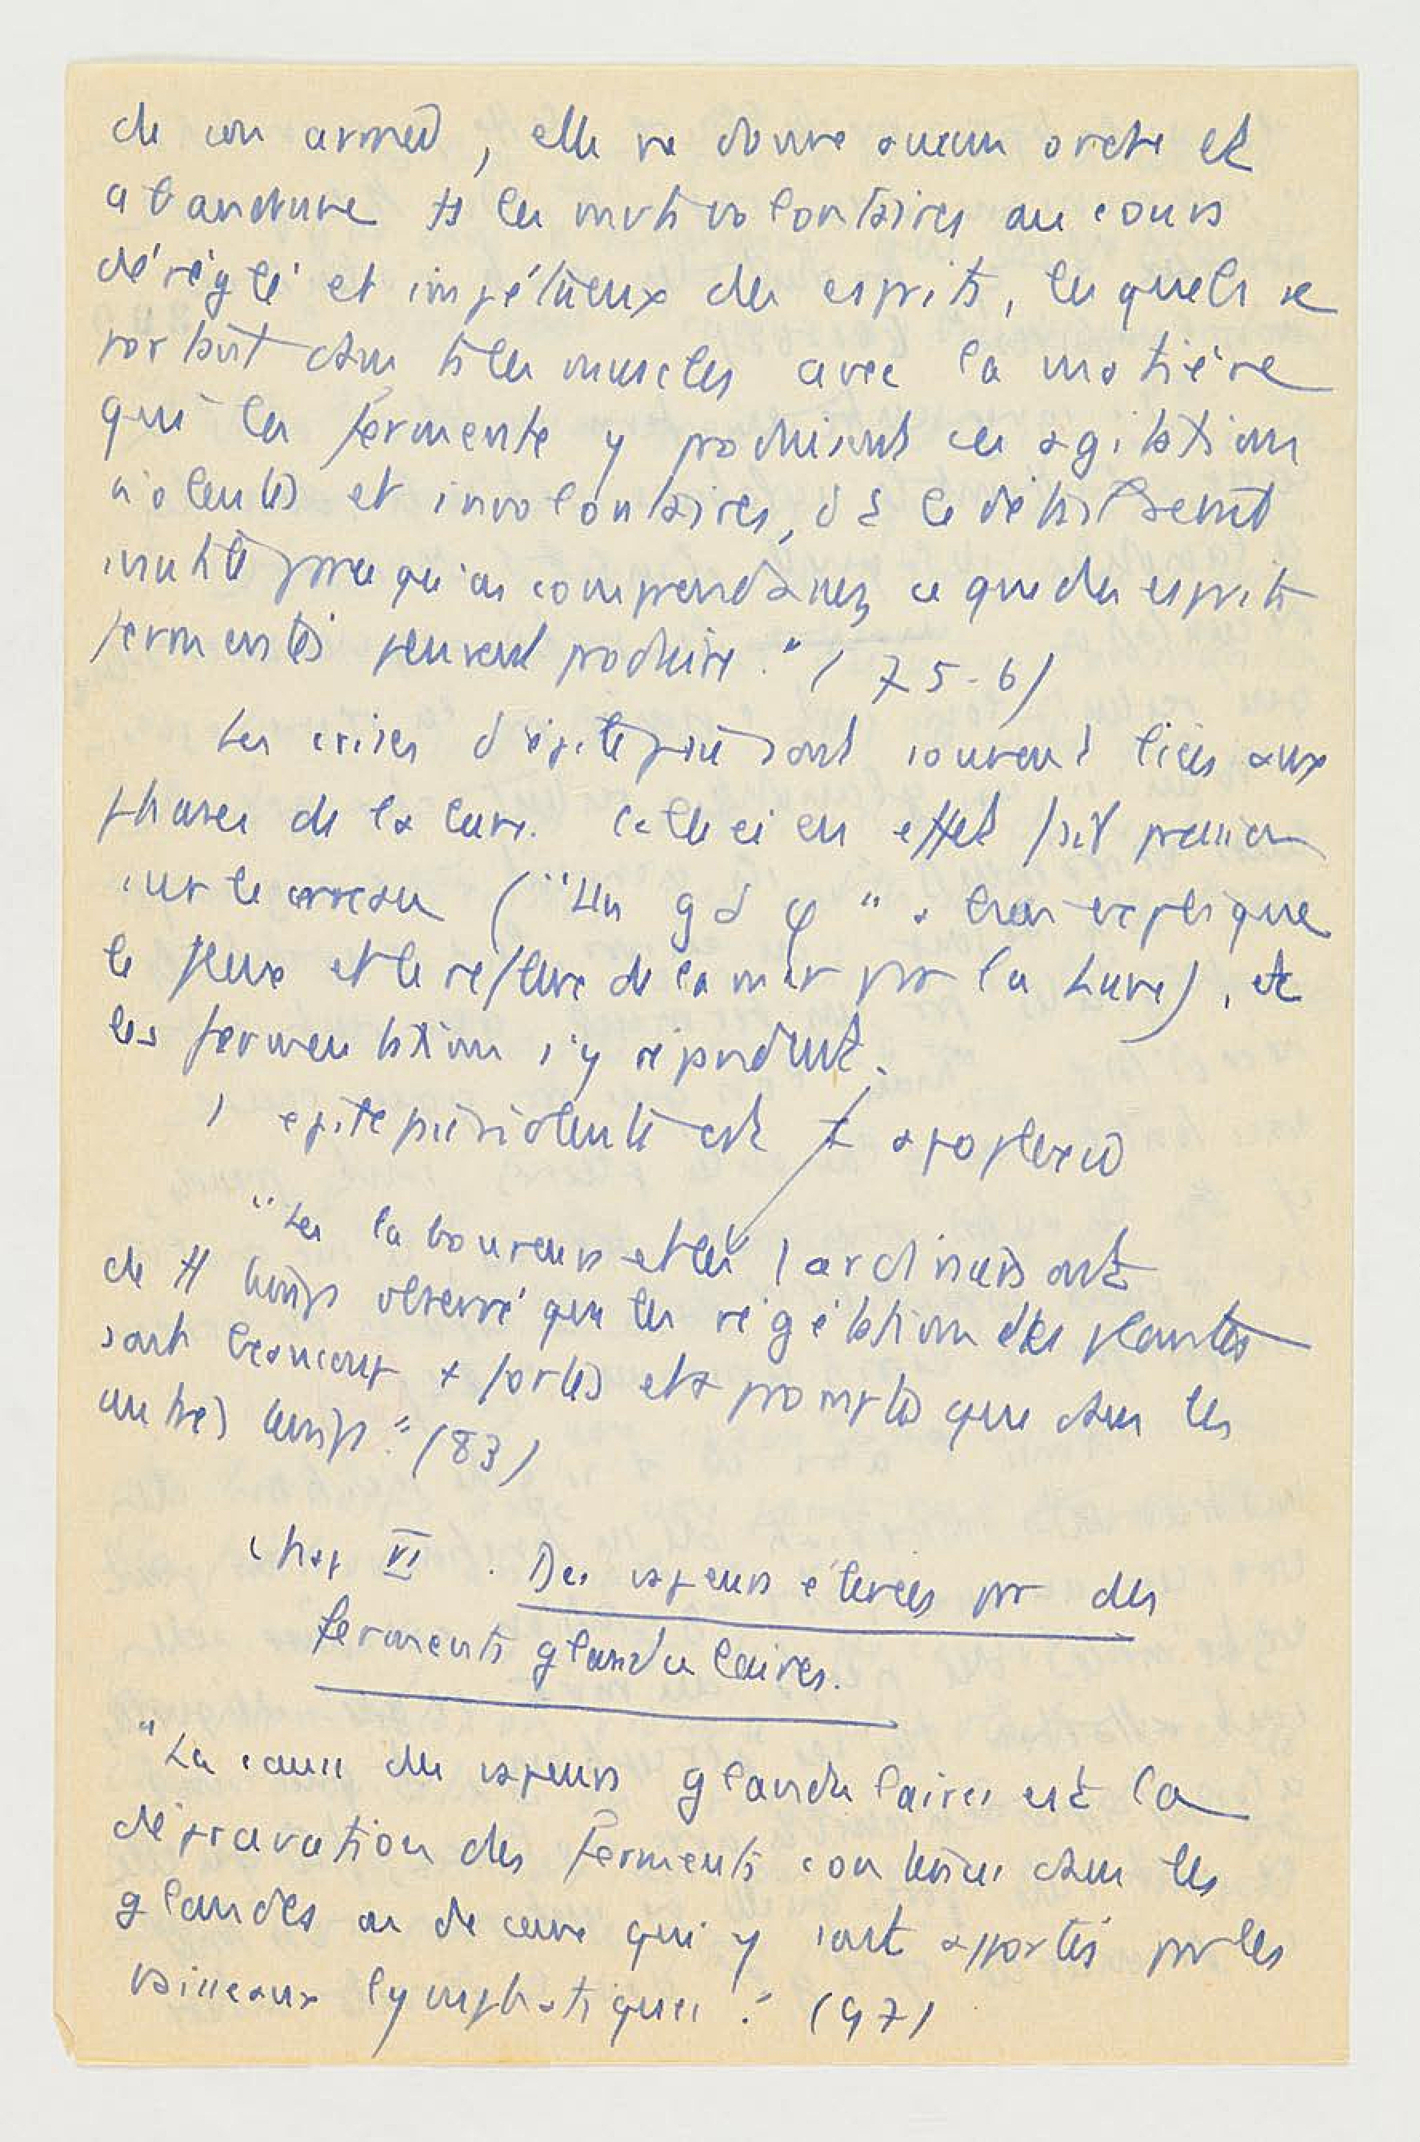 de son armée, elle ne donne aucun ordre et
abandonne ts les mvts volontaires au cours
déréglé et impétueux des esprits, lesquels se
portant dans ts les muscles avec la matière
qui les fermente y produisent ces agitations
violentes et involontaires, dt le détail serait
inutile parce qu'on comprend assez ce que des esprits
fermentés peuvent produire." (75-6)
Les crises d'épilepsie sont souvent liées aux
phases de la lune. Celle ci en effet fait pression
sur le cerveau ("Un gd φ" a bien expliqué
le flux et le reflux de la mer par la Lune), et
les fermentations s'y répandent.
epilepsie violente est apoplexie
"Les laboureurs et les jardiniers ont
de tt temps observé que les végétations des plantes
sont beaucoup + fortes et + promptes que dans les
autres temps." (83)
Chap VI. Des vapeurs élevées par des
ferments glandulaires.
"La cause des vapeurs glandulaires est la
dépravation des ferments contenus dans les
glandes ou de ceux qui y sont apportés par les
vaisseaux lymphatiques." (97)